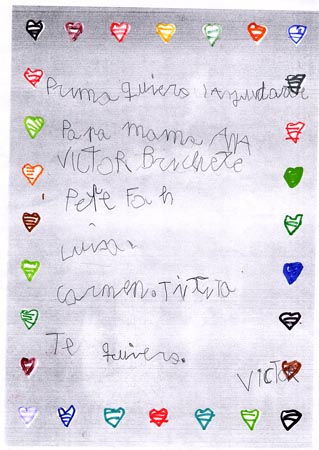 Prima quiero
Para mama ANA
VICTOR Bruchete
Pepe
Luisa.
carmen. Titita
Te quiero.
VICTOR